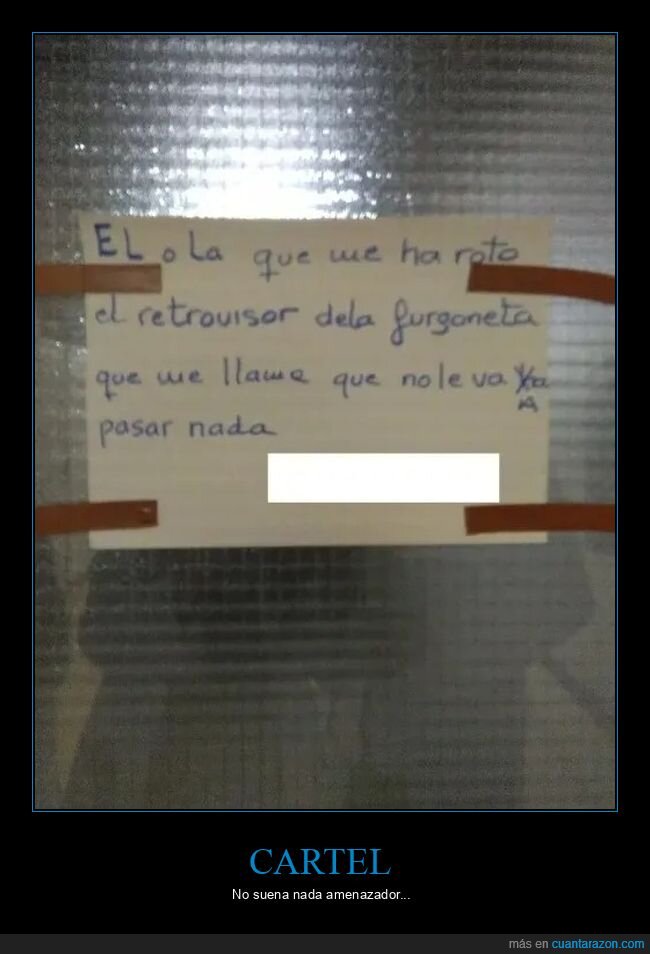 EL o La que me ha roto
el retrovisor dela furgoneta
que me llame que no le va
A
pasar nada
CARTEL
No suena nada amenazador...
más en cuantarazon.com